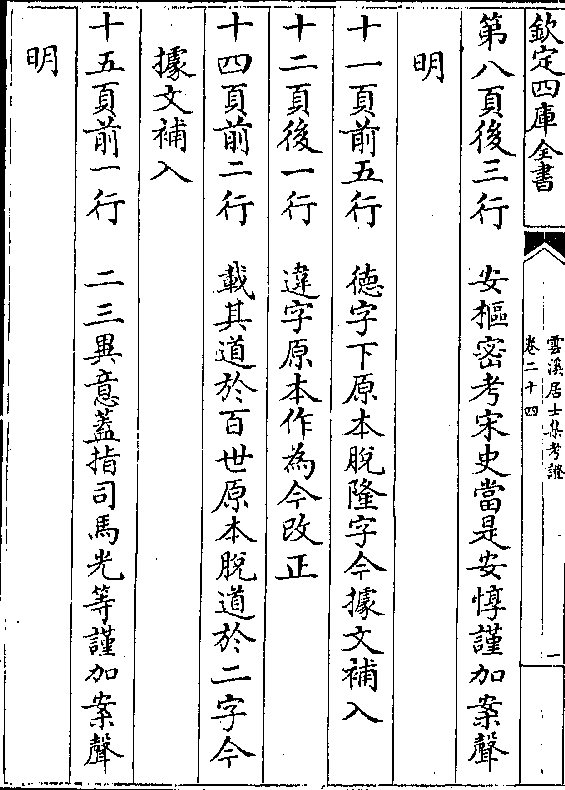 欽定四庫全書
雲溪居士集考證
卷二十四
一
第八頁後三行　安樞密考宋史當是安惇謹加案聲
明
十一頁前五行　德字下原本脫隆字今據文補入
十二頁後一行　違字原本作為今改正
十四頁前二行　載其道於百世原本脫道於二字今
據文補入
十五頁前一行　二三異意蓋指司馬光等謹加案聲
明